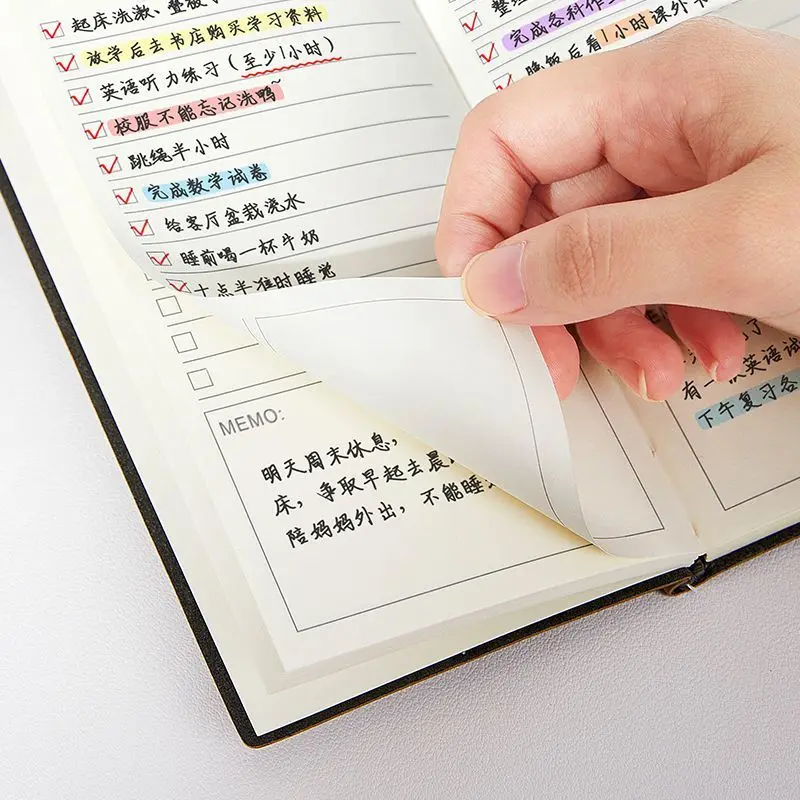 起床洗漱、整
放学后去书店购买学习资料
英语听力练习（至少1小时）
校服不能忘记洗鸭~
跳绳半小时
完成数学试卷
给客厅盆栽浇水
睡前喝一杯牛奶
十点半准时睡觉
MEMO:
明天周末休息，
床，争取早起去晨
陪妈妈外出，不能睡
整理
完成各科作
晚饭后看1小时课外
了
有一次英语试
下午复习各